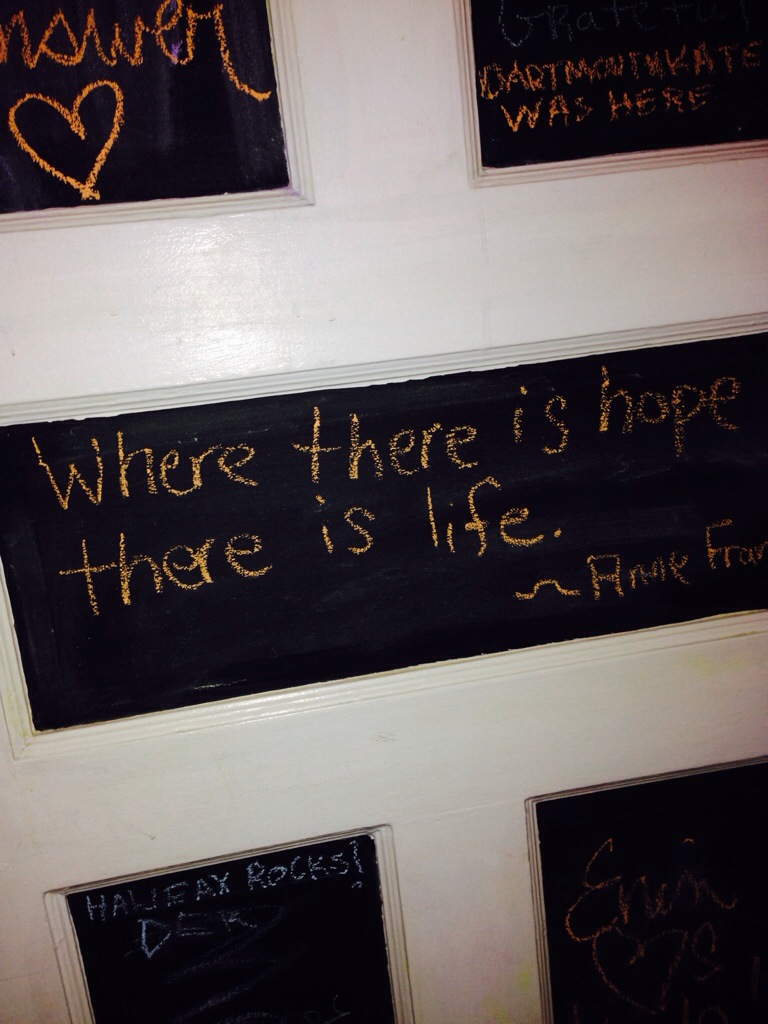 Grateful
DARTMOUTHKATE
WAS HERE
Where there is hope
there is life.
~ Anne
HALIFAX ROCKS!
DER
Erin